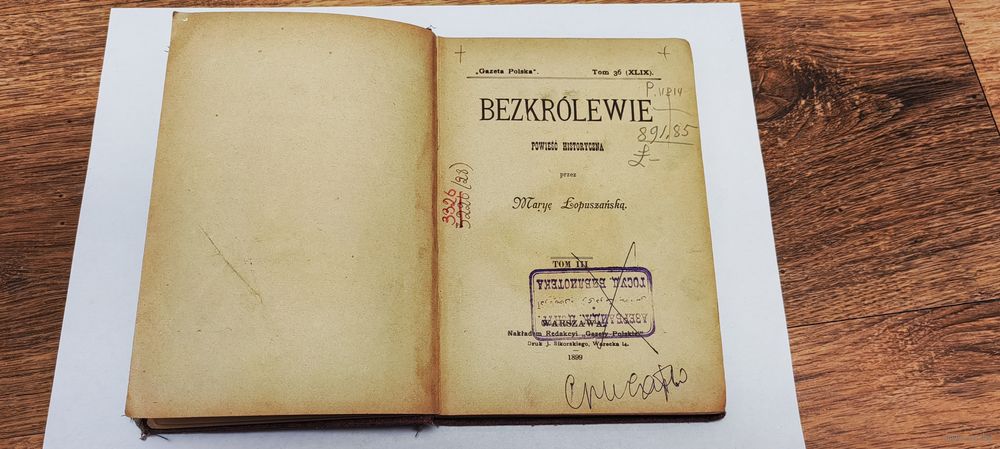 „Gazeta Polska“. Tom 36 (XLIX).
BEZKRÓLEWIE
POWIEŚĆ HISTORYCZNA
przez
Maryę Łopuszańską.
TOM III
WARSZAWA.
Nakładem Redakcyi „Gazety Polskiej“
Druk J. Sikorskiego, Warecka 14.
1899
891.85
3326
3226 (28)
АЗЕРБАЙДЖ.
ГОСУД. БИБЛИОТЕКА